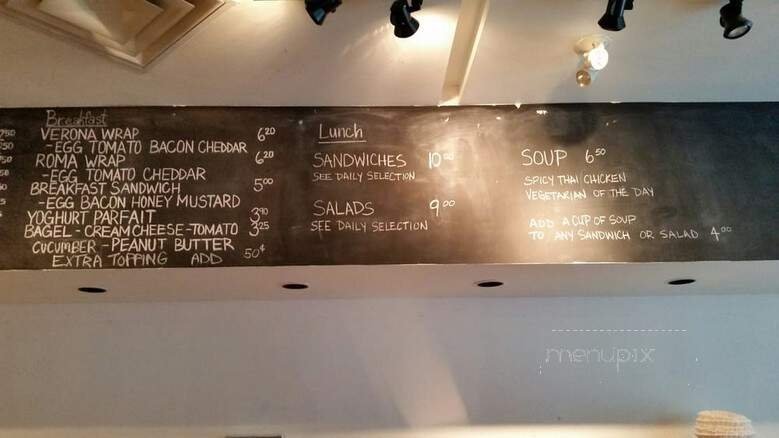 Breakfast
VERONA WRAP 6.20
-EGG TOMATO BACON CHEDDAR
ROMA WRAP 6.20
-EGG TOMATO CHEDDAR
BREAKFAST SANDWICH 5.00
-EGG BACON HONEY MUSTARD
YOGHURT PARFAIT 3.90
BAGEL-CREAMCHEESE-TOMATO 3.25
CUCUMBER-PEANUT BUTTER
EXTRA TOPPING ADD 50¢
Lunch
SANDWICHES 10.00
SEE DAILY SELECTION
SALADS 9.00
SEE DAILY SELECTION
SOUP 6.50
SPICY THAI CHICKEN
VEGETARIAN OF THE DAY
ADD A CUP OF SOUP
TO ANY SANDWICH OR SALAD 4.00
menupix